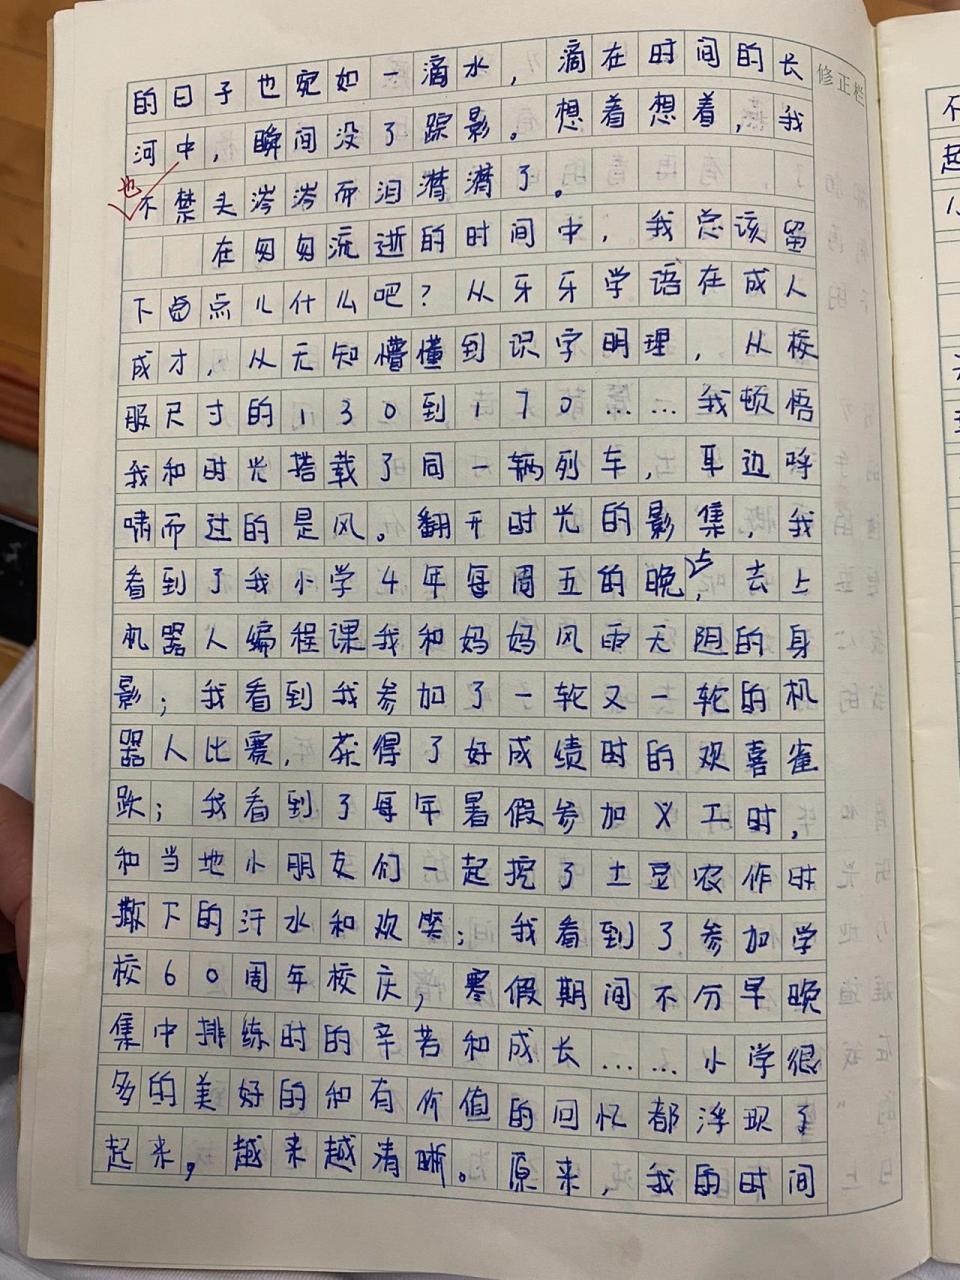 修正栏
的日子也宛如一滴水，滴在时间的长
河中，瞬间没了踪影。想着想着，我
也
不禁头涔涔而泪潸潸了。
在匆匆流逝的时间中，我总该留
下点儿什么吧？从牙牙学语在成人
成才，从无知懵懂到识字明理，从校
服尺寸的130到170……我顿悟
我和时光搭载了同一辆列车，耳边呼
啸而过的是风。翻开时光的影集，我
看到了我小学4年每周五的晚上，去上
机器人编程课我和妈妈风雨无阻的身
影；我看到我参加了一轮又一轮的机
器人比赛，获得了好成绩时的欢喜雀
跃；我看到了每年暑假参加义工时，
和当地小朋友们一起挖了土豆农作时
撒下的汗水和欢笑；我看到了参加学
校60周年校庆，寒假期间不分早晚
集中排练时的辛苦和成长……小学很
多的美好的和有价值的回忆都浮现了
起来，越来越清晰。原来，我的时间